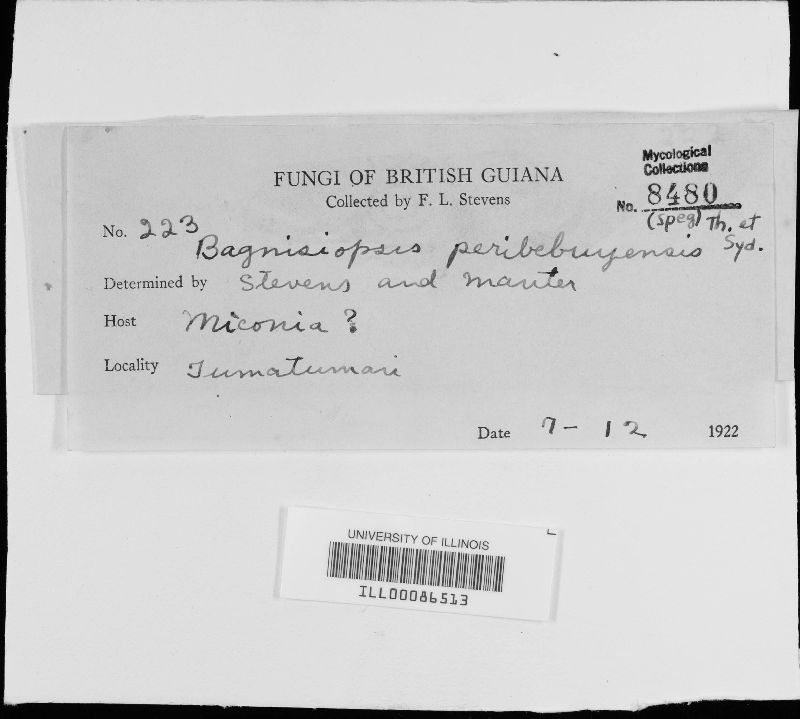 FUNGI OF BRITISH GUIANA
Collected by F. L. Stevens
Mycological
Collections
No. 8480
No. 223
(Speg) Th. et
Bagnisiopsis peribebuyensis Syd.
Determined by Stevens and Manter
Host Miconia ?
Locality Tumatumari
Date 7- 12 1922
UNIVERSITY OF ILLINOIS
ILL00086513